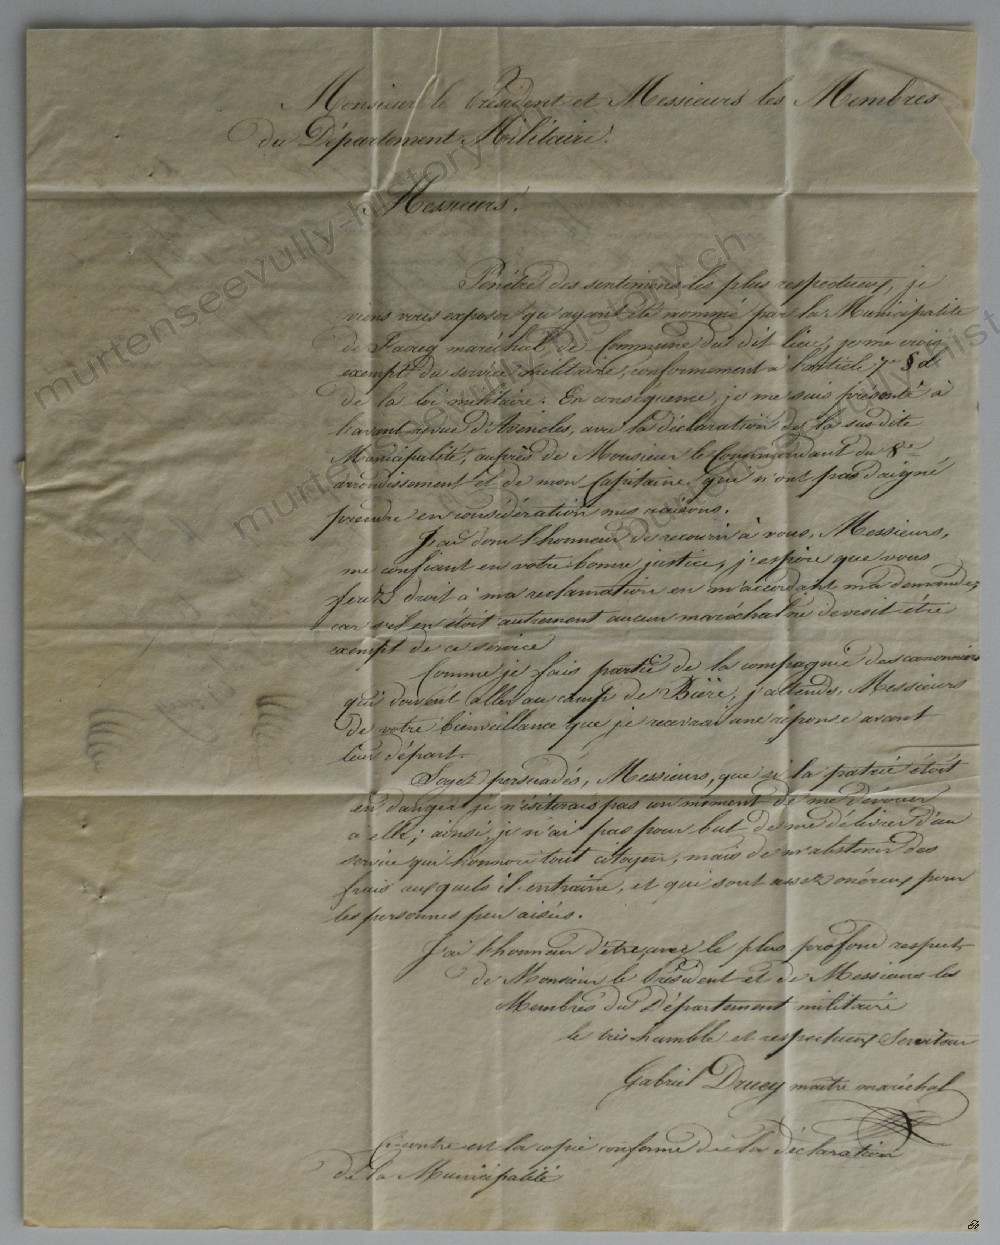 Monsieur le Président et Messieurs les Membres
du Département Militaire.
Messieurs.
Pénétré des sentimens les plus respectueux, je
viens vous exposer qu'ayant été nommé par la Municipalité
de Faoug maréchal de Commune du dit lieu, je me crois
exempt du service militaire, conformement à l'article 7e § d.
de la loi militaire. En conséquence, je me suis présenté à
l'avant revue d'Avenches, avec la déclaration de la susdite
Municipalité, auprès de Monsieur le Commandant du 8e
arrondissement et de mon Capitaine, qui n'ont pas daigné
prendre en considération mes raisons.
J'ai donc l'honneur de recourir à vous, Messieurs,
me confiant en votre bonne justice, j'espère que vous
ferez droit à ma reclamation en m'accordant ma demande;
car s'il en étoit autrement aucun maréchal ne devroit être
exempt de ce service
Comme je fais partie de la compagnie des canonniers
qui doivent aller au camp de Bière, j'attends, Messieurs
de votre bienveillance que je recevrai une réponse avant
leur départ.
Soyez persuadés, Messieurs, que si la patrie étoit
en danger je n'ésiterais pas un moment de me dévouer
a elle; ainsi, je n'ai pas pour but de me délivrer d'un
service qui honnore tout citoyen, mais de m'abstenir des
frais auxquels il entraine, et qui sont assez onéreux pour
les personnes peu aisées.
J'ai l'honneur d'être, avec le plus profond respect,
de Monsieur le Président et de Messieurs les
Membres du Département militaire
le très humble et respectueux Serviteur
Gabriel Druey maître maréchal
Ci-contre est la copie conforme de la déclaration
de la Municipalité
murtenseevully-history.ch
murtenseevully-history.ch
murtenseevully-hist